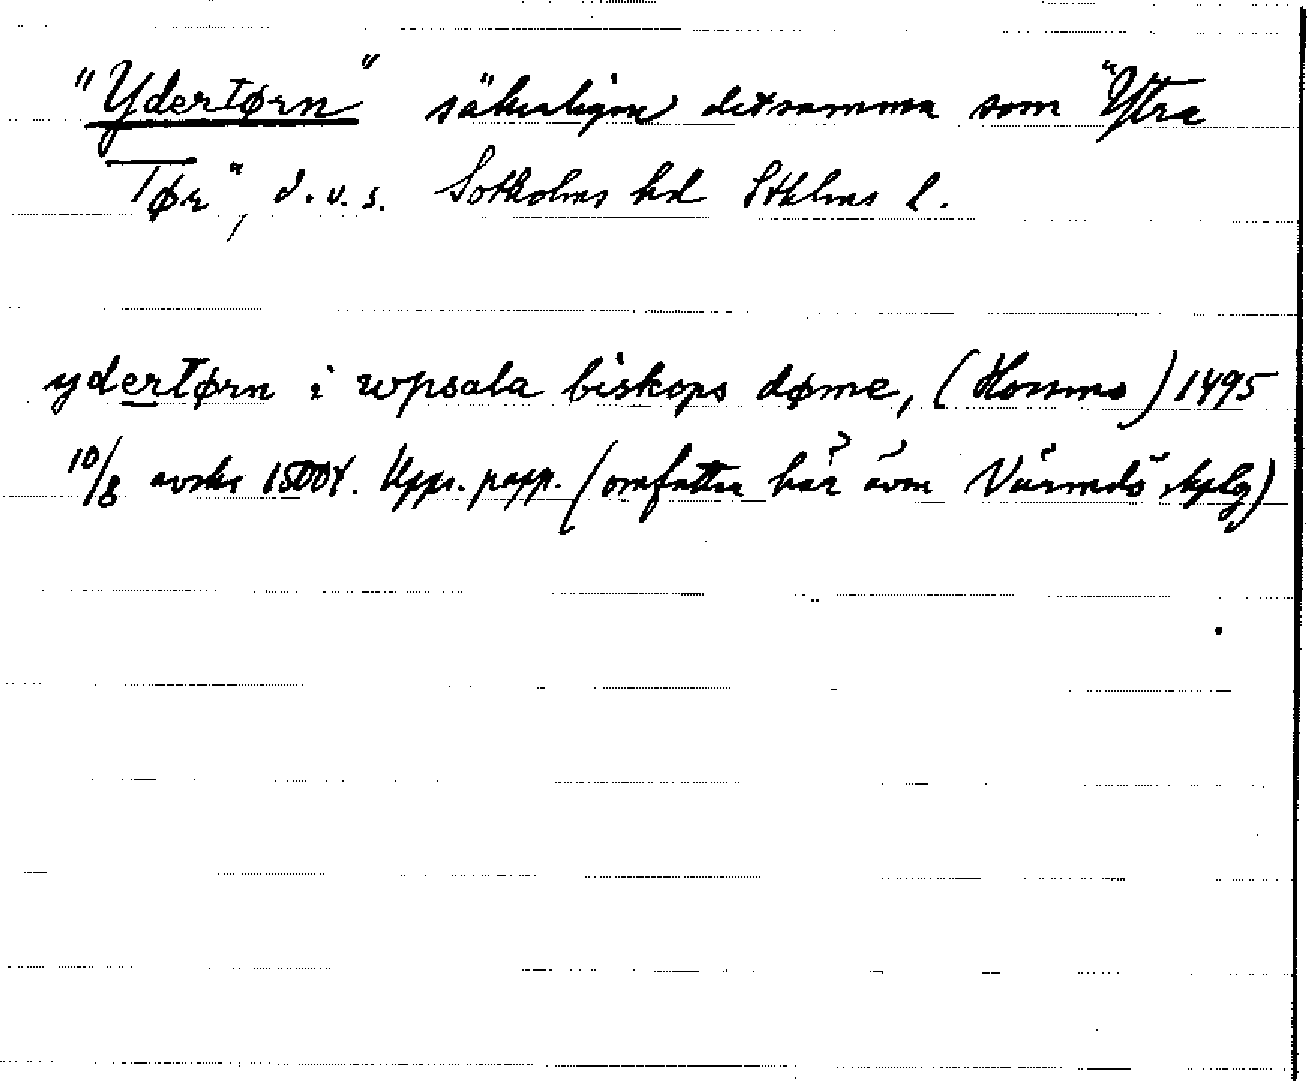 "Ydertørn" säkerligen detsamma som "Ytra
Tør", d.v.s. Sotholms hd Sthlms l.
ydertørn i wpsala biskops døme, (Hornsns) 1495
10/8 avskr 1500t. Upps. papp. (omfattar här även Värmdö skplg)